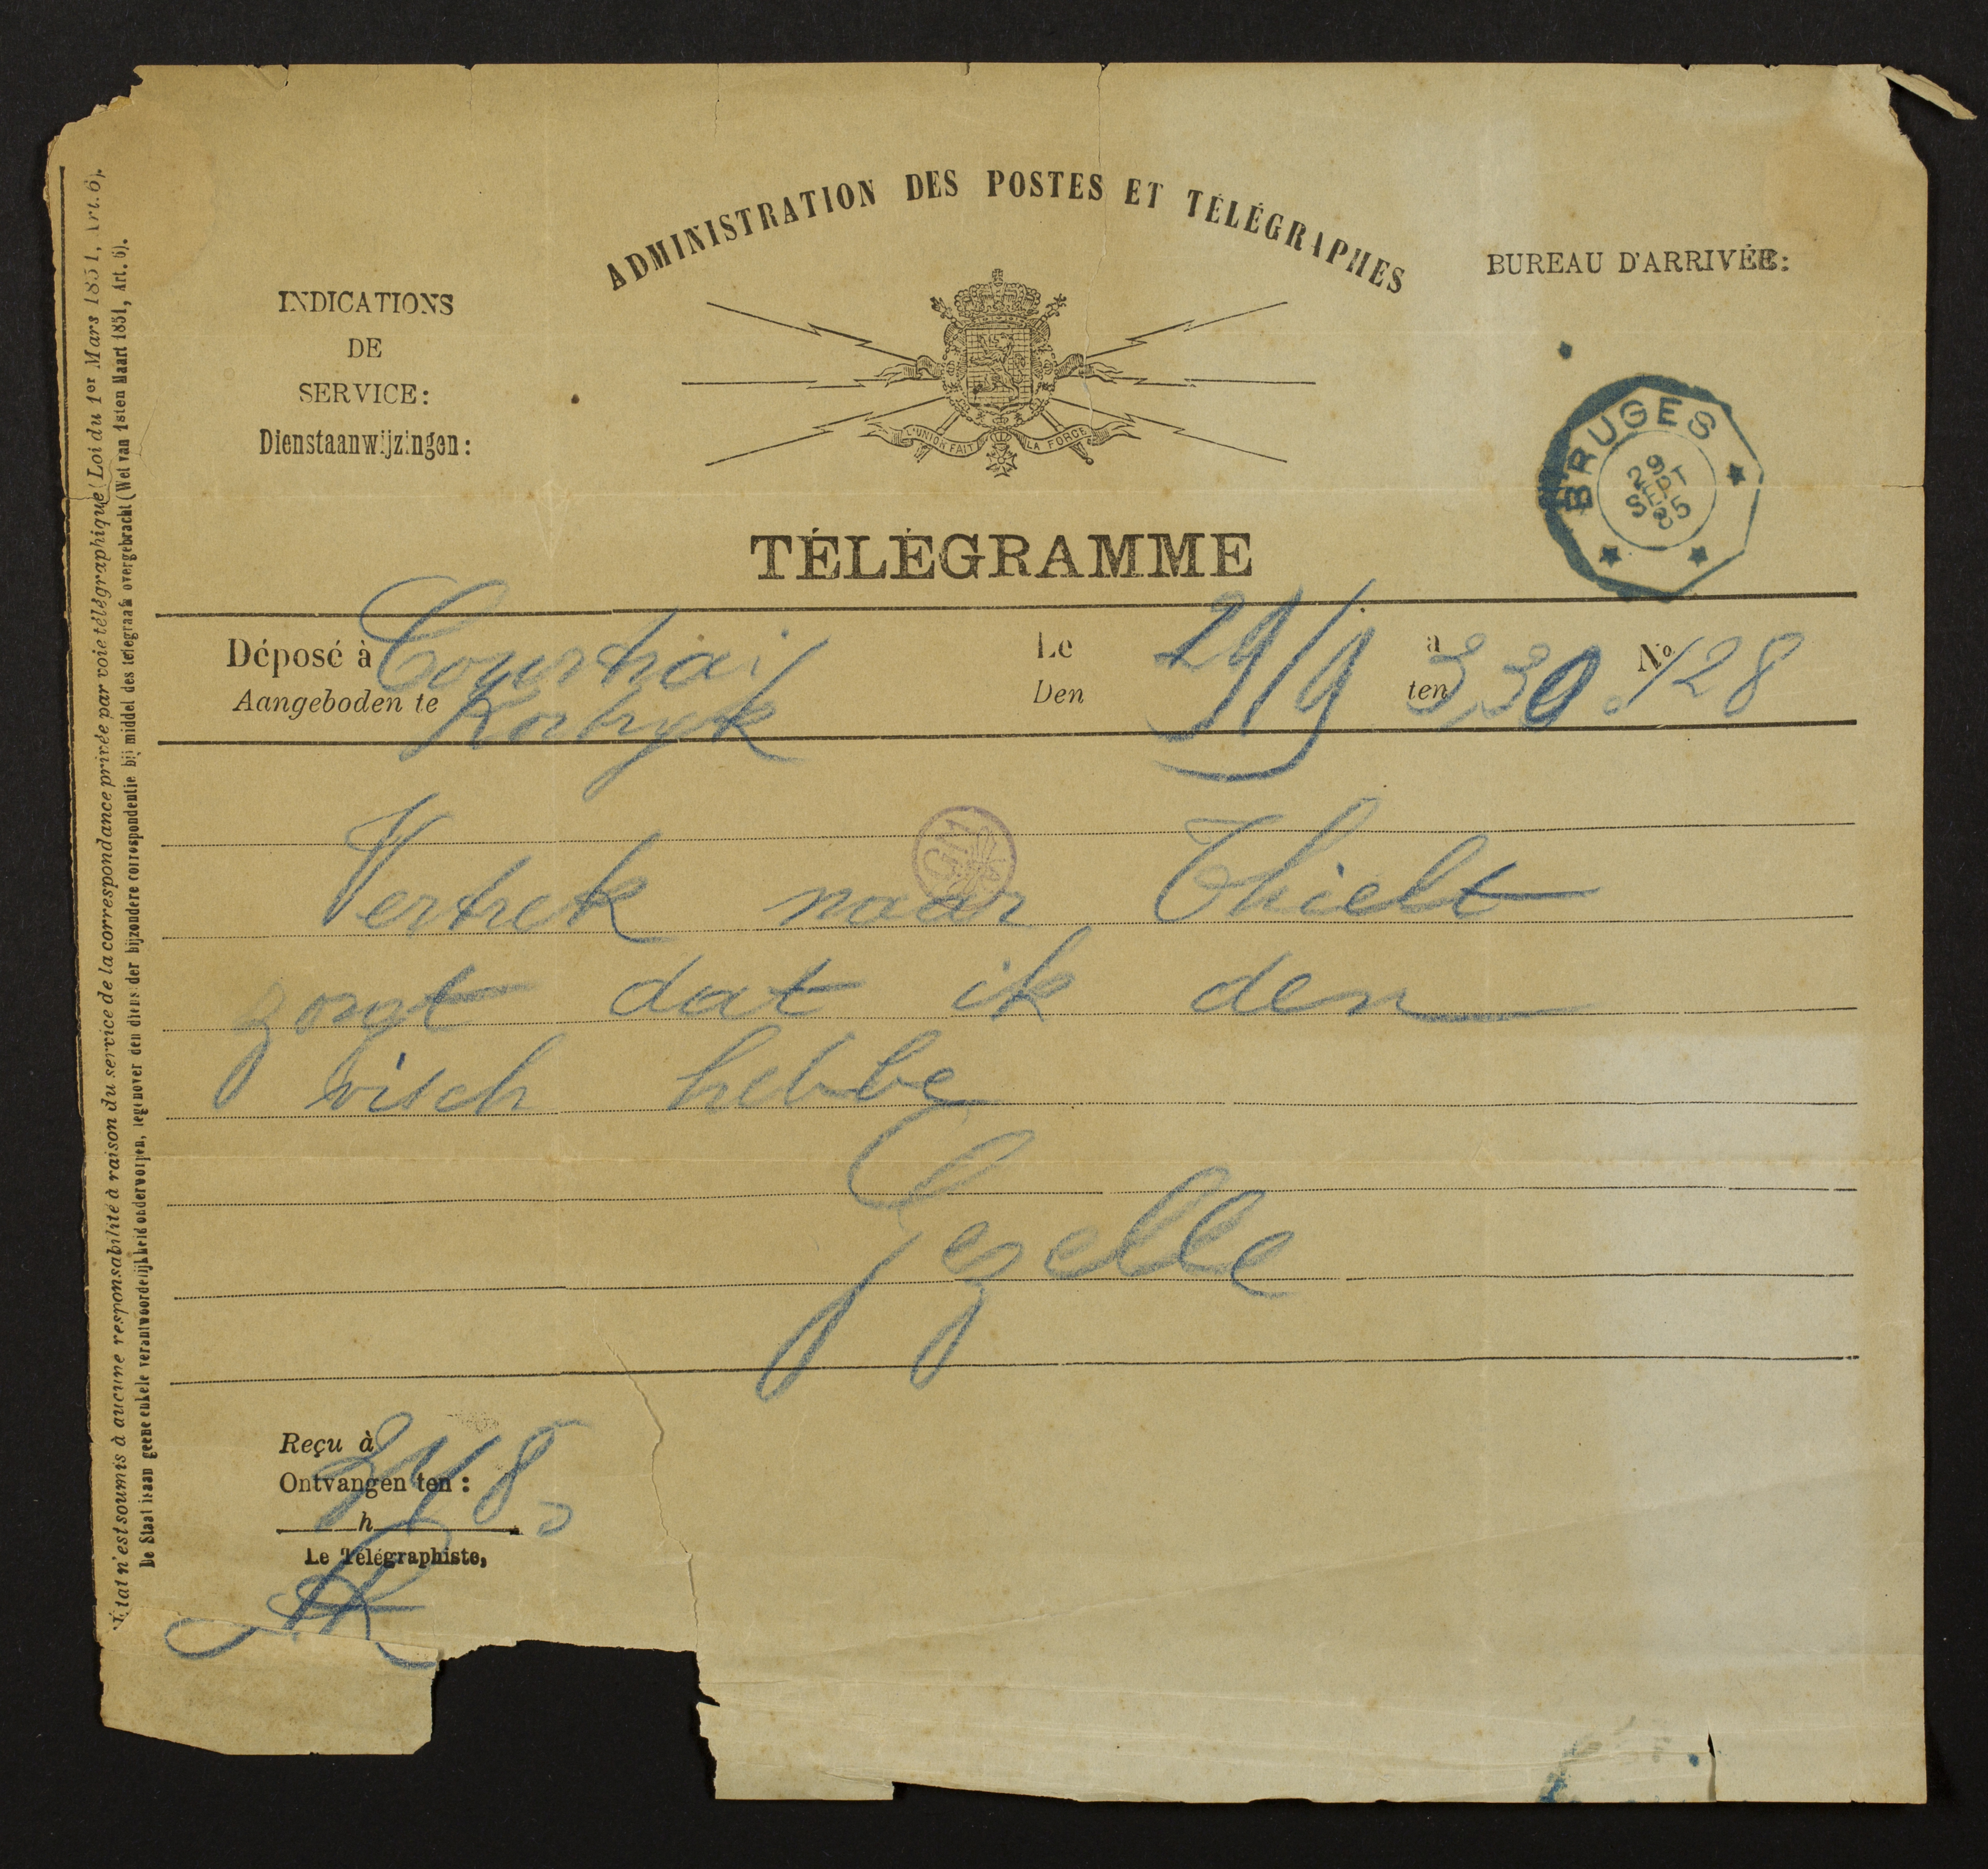 ADMINISTRATION DES POSTES ET TÉLÉGRAPHES
INDICATIONS
DE
SERVICE:
Dienstaanwijzingen:
L'UNION FAIT LA FORCE
BUREAU D'ARRIVÉE:
BRUGES
29
SEPT
85
TÉLÉGRAMME
Déposé à Courtrai Le 29/9 à 3,30. No 128
Aangeboden te Kortryk Den ten
Vertrek naar Thielt
zorgt dat ik den
visch hebbe
Gezelle
Reçu à
Ontvangen ten:
h
Le Télégraphiste,
État n'est soumis à aucune responsabilité à raison du service de la correspondance privée par voie télégraphique (Loi du 1er Mars 1851, Art. 6).
De Staat is aan geene enkele verantwoordelijkheid onderworpen, tegenover den dienst der bijzondere correspondentie bij middel des telegraafs overgebracht (Wet van 1sten Maart 1851, Art. 6).